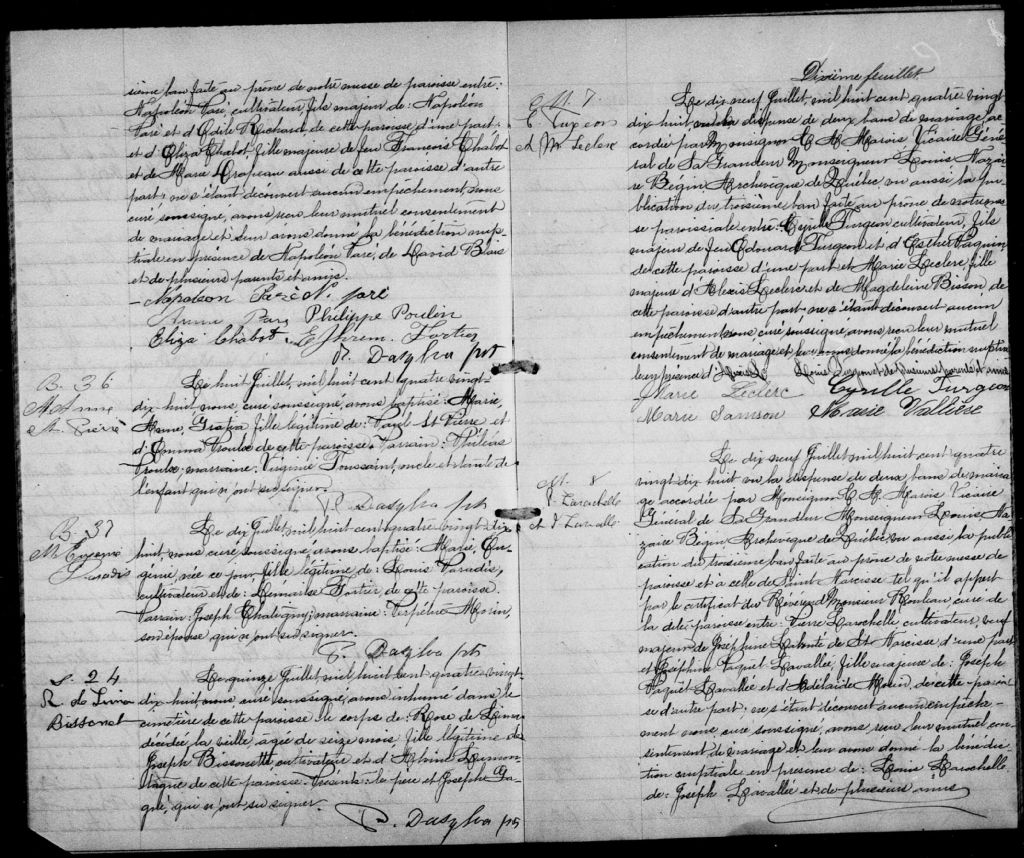 sième ban faite au prône de notre messe de paroisse entre:
Napoléon Paré, cultivateur, fils majeur de: Napoléon
Paré et d'Odile Rochard, de cette paroisse d'une part
et d'Eliza Chabot, fille majeure de feu François Chabot
et de Marie Crapeau aussi de cette paroisse d'autre
part; ne s'étant découvert aucun empêchement, nous
curé soussigné, avons reçu leur mutuel consentement
de mariage et leur avons donné la bénédiction nup-
tiale en présence de Napoléon Paré, de David Blais
et de plusieurs parents et amis.
Napoléon Paré N. Paré
Philippe Poulin
Eliza Chabot. Ephrem Fortier
P. Dasylva ptr
B. 36
M. Anne
St. Pierre
Le huit Juillet, mil huit cent quatre vingt-
dix-huit nous, curé soussigné, avons baptisé: Marie,
Anne, Grazia fille légitime de: St Pierre et
d'Emma Proulx de cette paroisse. Parrain: Philéas
Proulx, marraine: Virginie Toussaint, oncle et tante de
l'enfant qui n'ont su signer.
P. Dasylva ptr
B. 37
M. Eugénie
Paradis
Le dix Juillet, mil huit cent quatre vingt dix
huit, nous curé soussigné, avons baptisé: Marie, Eu-
génie, née ce jour fille légitime de: Louis Paradis,
cultivateur et de: Fortier, de cette paroisse.
Parrain: Joseph Chatigny; marraine: Morin,
son épouse qui n'ont su signer.
P. Dasylva ptr
S. 24
R. de Lima
Bissonet
Le quinze Juillet, mil huit cent quatre vingt
dix huit, nous curé soussigné, avons inhumé dans le
cimetière de cette paroisse le corps de: Rose de Lima
décédée la veille, agée de seize mois, fille légitime de
Joseph Bissonette cultivateur et d'
de cette paroisse. Présents: le père et Joseph Ga-
gné, qui n'ont su signer.
P. Dasylva ptr
Dixième feuillet
M. 7.
C. Turgeon
et M. Leclerc
Le dix neuf Juillet, mil huit cent quatre vingt
dix huit, vu la dispense de deux bans de mariage, ac
cordée par Monsignor C. A. Marois, Vicaire Géné
ral de Sa Grandeur Monseigneur Louis Nazai
re Bégin Archevêque de Québec vu aussi la pu
blication du troisième ban faite au prône de notre mes
se paroissiale entre: Cyrille Turgeon cultivateur, fils
majeur de feu Edouard Turgeon et d'Esther Paquin
de cette paroisse d'une part et Marie Leclerc, fille
majeure d'Alexis Leclerc et de Magdeleine Bisson, de
cette paroisse d'autre part, ne s'étant découvert aucun
empêchement nous, curé soussigné, avons reçu leur mutuel
consentement de mariage et leur avons donné la bénédiction nuptia
le en présence d' Louis Turgeon et de plusieurs parents et amis
Marie Leclerc Cyrille Turgeon
Marie Samson Marie Vallière
M. 8
P. Larochelle
et J. Lavallé
Le dix neuf Juillet mil huit cent quatre
vingt dix huit vu la dispense de deux bans de maria
ge accordée par Monseignor C. A. Marois Vicaire
Général de Sa Grandeur Monseigneur Louis Na
zaire Bégin Archevêque de Québec, vu aussi la publi
cation du troisième ban faite au prône de notre messe de
paroisse et à celle de Saint Narcisse tel qu'il appert
par le certificat du Révérend Monsieur Rouleau curé de
la dite paroisse entre: Pierre Larochelle cultivateur, veuf
majeur de Joséphine de St Narcisse d'une part
et Joséphine Paquet Lavallée, fille majeure de: Joseph
Paquet Lavallée et d'Adélaïde Morin, de cette parois
se d'autre part; ne s'étant découvert aucun empêche-
ment nous curé soussigné, avons reçu leur mutuel con
sentement de mariage et leur avons donné la bénédic
tion nuptiale en présence de: Louis Larochelle
de: Joseph Lavallée et de plusieurs amis